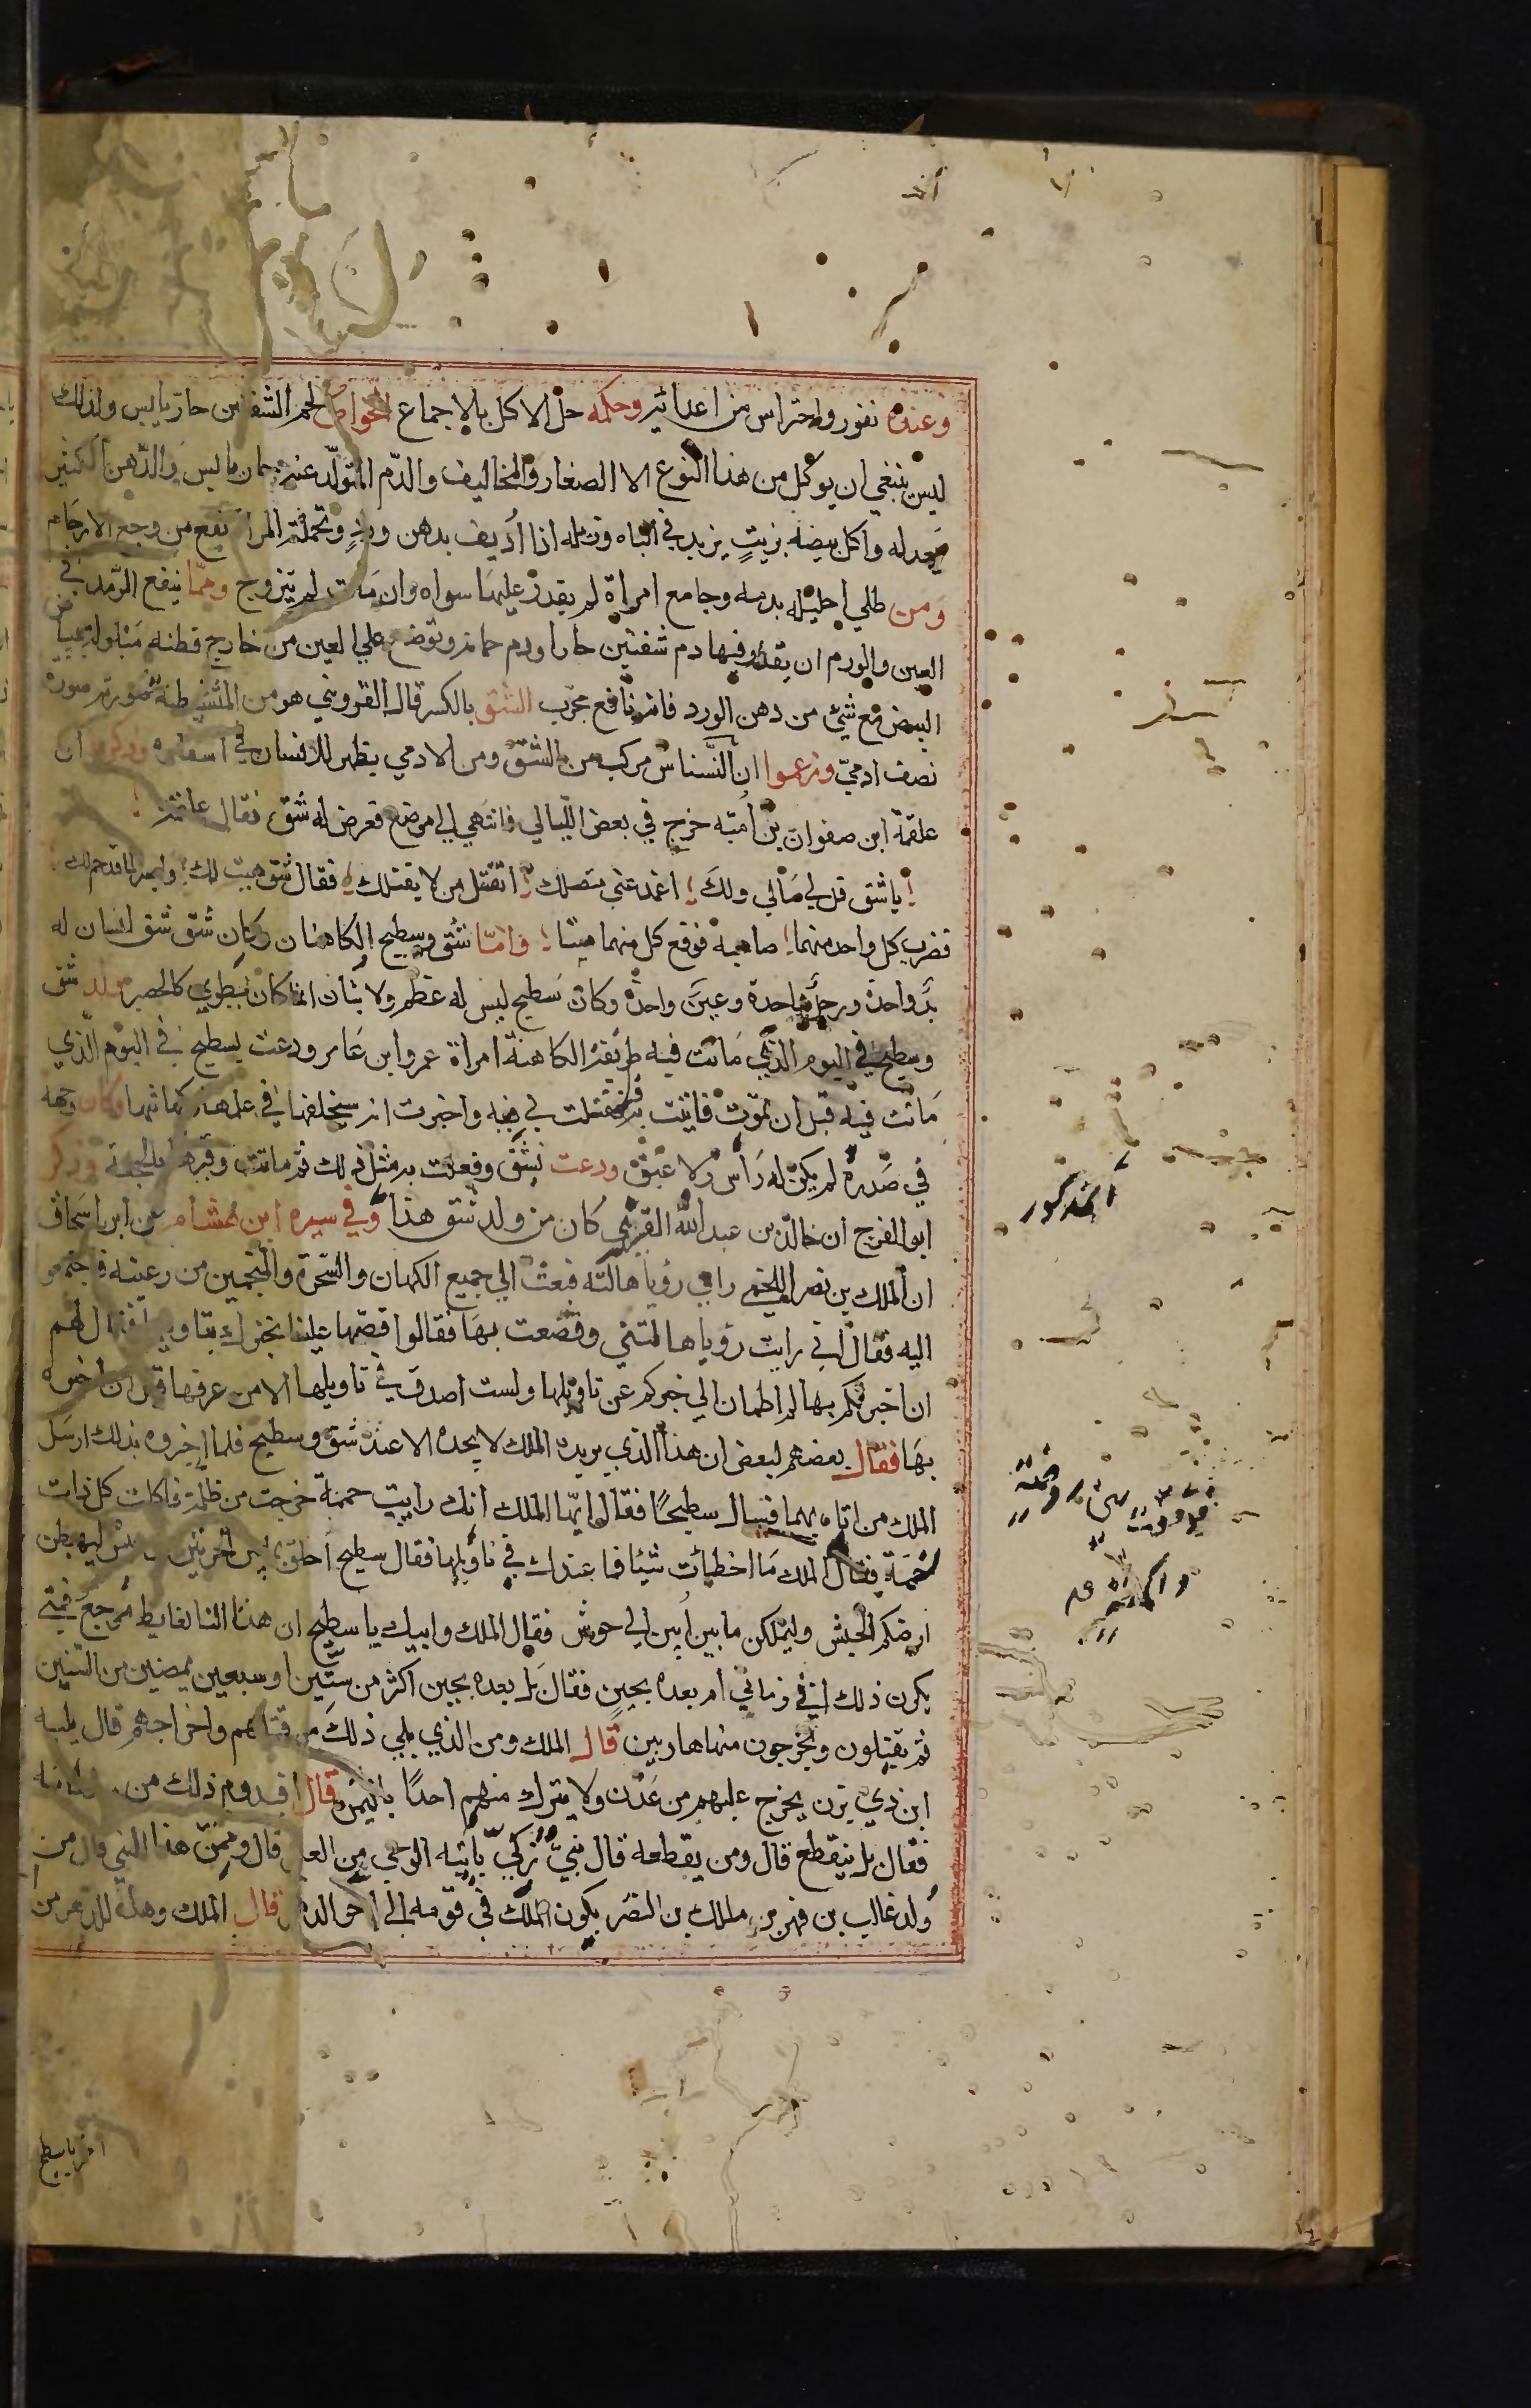 وعنده نفور واحتراس من اعدائه وحكمه حل الاكل بالاجماع الخواص لحم الشفنين حار يابس ولذلك
ليس ينبغي ان يوكل من هذا النوع الا الصغار والمخاليف والدم المتولد عنه حار يابس والدهن الكثير
يعدله واكل بيضه بزيت يزيد في الباه وزبله اذا أديف بدهن ورد وتحملته المراة نفع من وجع الارحام
ومن طلي احليله بدمه وجامع امراة لم يقدر عليها سواه وان مات لم تتزوج ومما ينفع الرمد في
العين والورم ان يقطر فيها دم شفنين حارا ودم حمام ويوضع علي العين من خارج قطنه مبلوله ببياض
البيض مع شئ من دهن الورد فانه نافع مجرب الشق بالكسر قال القزويني هو من المتشيطنة صورته صورة
نصف ادمي وزعموا ان النسناس مركب من الشق ومن الادمي يظهر للانسان في اسفاره وذكروا ان
علقمة ابن صفوان بن أميه خرج في بعض الليالي فانتهي الي موضع فعرض له شق فقال علقمة
ياشق قل لي مالي ولك اغمد عني منصلك اتقتل من لا يقتلك فقال شق هيت لك واصبر لما قد حم لك
فضرب كل واحد منهما صاحبه فوقع كل منهما ميتا واما شق وسطيح الكاهنان وكان شق شق انسان له
يد واحدة ورجل واحدة وعين واحدة وكان سطيح ليس له عظم ولا بنان انما كان يطوي كالحصير ولد شق
وسطيح في اليوم الذي ماتت فيه طريفة الكاهنة امراة عمرو ابن عامر ودعت بسطيح في اليوم الذي
ماتت فيه قبل ان تموت فاتيت به فتفلت في فيه واخبرت انه سيخلفها في علمها وكهانتها وكان وجهه
في صدره لم يكن له راس ولا عنق ودعت بشق وفعلت به مثل ذلك ثم ماتت وقبرها بالجحفة وذكر
ابو الفرج ان خالد بن عبد الله القسري كان من ولد شق هذا وفي سيرة ابن هشام عن ابن اسحاق
ان الملك بن نصر اللخمي راي رؤيا هالته فبعث الي جميع الكهان والسحرة والمنجمين من رعيته فاجتمعوا
اليه فقال اني رايت رؤيا هالتني وفضعت بها فقالوا قصها علينا نخبرك بتاويلها فقال لهم
ان اخبرتكم بها لم اطمان الي خبركم عن تاويلها ولست اصدق في تاويلها الا من عرفها قبل ان اخبره
بها فقال بعضهم لبعض ان هذا الذي يريده الملك لا يجده الا عند شق وسطيح فلما اخبروه بذلك ارسل
الملك من اتاه بهما فسال سطيحا فقال ايها الملك انك رايت حممة خرجت من ظلمة فاكلت كل ذات
جمجمة فقال الملك ما اخطأت شيئا فما عندك في تاويلها فقال سطيح احلف بما بين الحرتين من حنش ليهبطن
ارضكم الحبش وليملكن ما بين أبين الي جرش فقال الملك وابيك ياسطيح ان هذا لنا لغايط موجع فمتي
يكون ذلك افي زماني ام بعده بحين فقال بل بعده بحين اكثر من ستين او سبعين يمضين من السنين
ثم يقتلون ويخرجون منها هاربين قال الملك ومن الذي يلي ذلك من قتلهم واخراجهم قال يليه
ابن ذي يزن يخرج عليهم من عدن ولا يترك منهم احدا باليمن قال افيدوم ذلك من سلطانه
فقال بل ينقطع قال ومن يقطعه قال نبي زكي ياتيه الوحي من العلي قال وممن هذا النبي قال من
ولد غالب بن فهر بن مالك بن النضر يكون الملك في قومه الي اخر الدهر قال الملك وهل للدهر من
اخر ياسطيح
المذكور